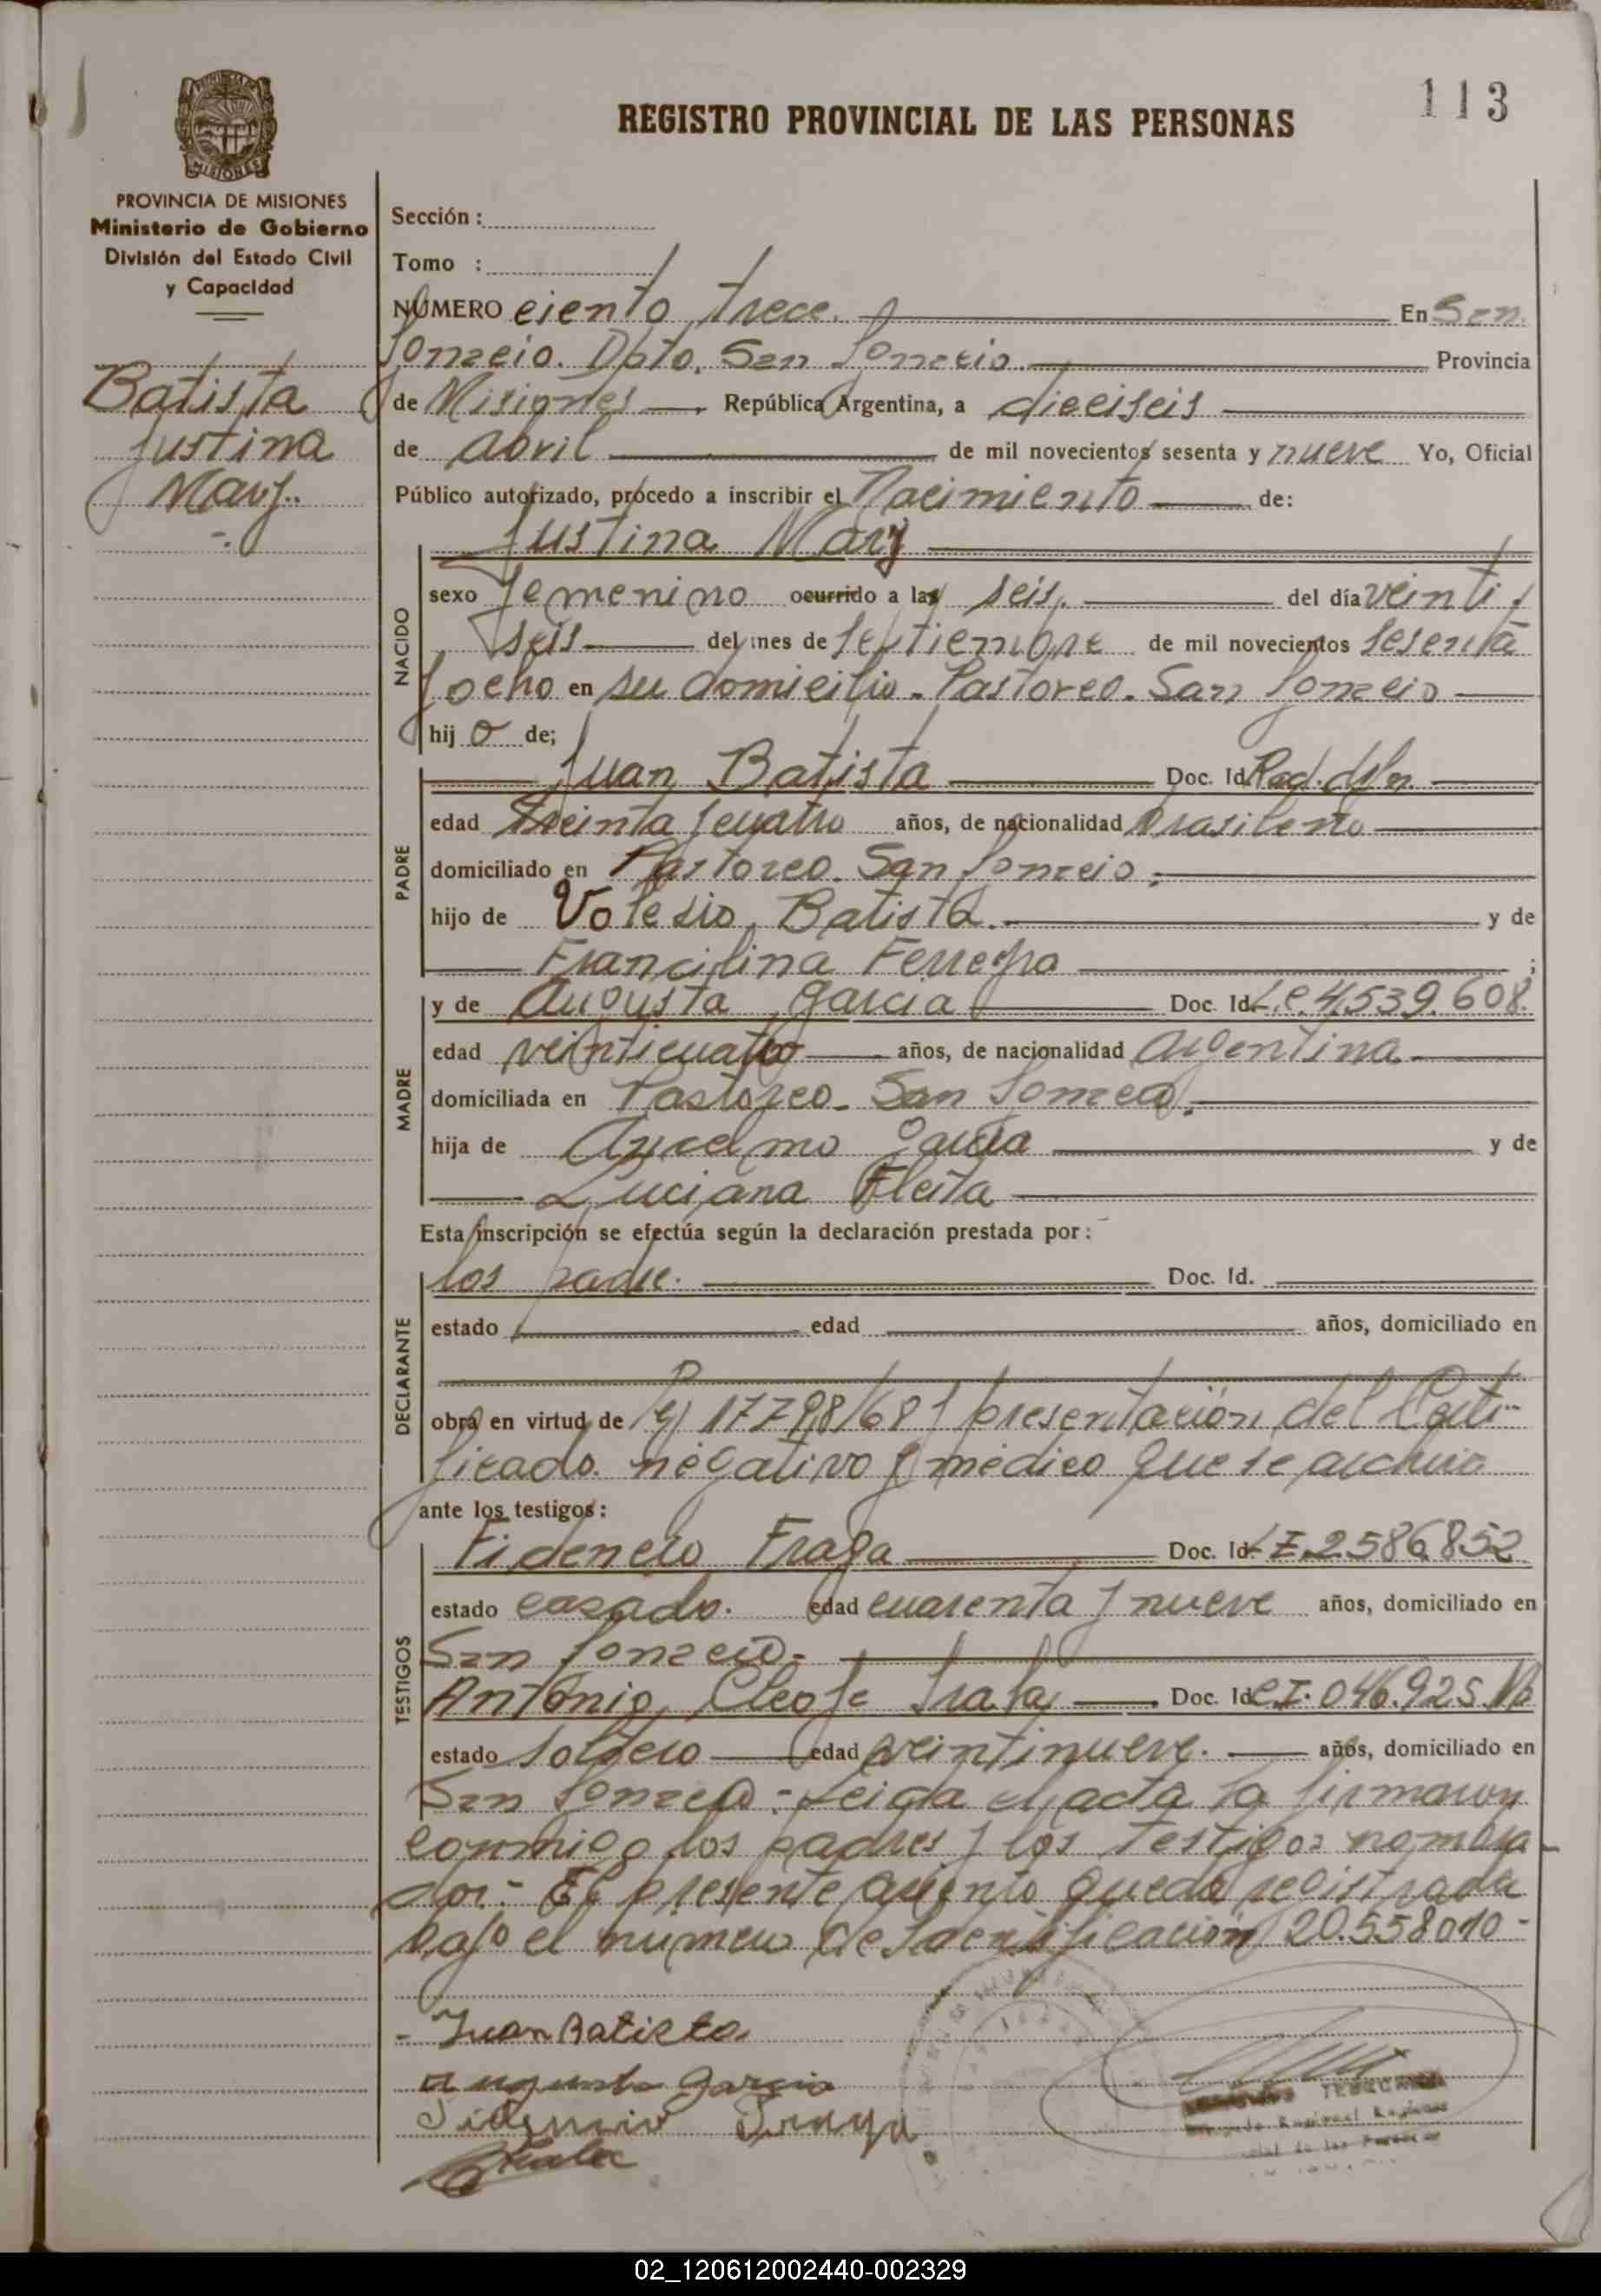 113
REGISTRO PROVINCIAL DE LAS PERSONAS
PROVINCIA DE MISIONES
MISIONES
PROVINCIA DE MISIONES
Ministerio de Gobierno
División del Estado Civil
y Capacidad
Batista
Justina
Mary.
Sección :
Tomo :
NÚMERO ciento trece. En San
Ignacio. Dpto. San Ignacio. Provincia
de Misiones República Argentina, a dieciseis
de abril de mil novecientos sesenta y nueve Yo, Oficial
Público autorizado, procedo a inscribir el Nacimiento de:
Justina Mary
NACIDO
sexo femenino ocurrido a las seis. del día veinti
seis del mes de septiembre de mil novecientos sesenta
y ocho en su domicilio - Pastoreo - San Ignacio
hij o de;
PADRE
Juan Batista Doc. Id.
edad treinta y cuatro años, de nacionalidad brasileño
domiciliado en Pastoreo. San Ignacio.
hijo de Batista. y de
Francilina ;
MADRE
y de Augusta Garcia Doc. Id. L.C 4.539.608.
edad veinticuatro años, de nacionalidad argentina
domiciliada en Pastoreo - San Ignacio.
hija de Garcia y de
Luciana Fleita
Esta inscripción se efectúa según la declaración prestada por :
DECLARANTE
los padre. Doc. Id.
estado edad años, domiciliado en
obra en virtud de presentación del Certi-
ficado negativo y medico que se archiva
ante los testigos :
TESTIGOS
Fidencio Fraga Doc. Id. 2586852
estado casado. edad cuarenta y nueve años, domiciliado en
San Ignacio.
Antonio Cleofe Doc. Id. C.I. 046.925
estado soltero edad veintinueve. años, domiciliado en
San Ignacio - Leida el acta la firmaron
conmigo los padres y los testigos nombra-
dos.- El presente asiento queda registrada
bajo el numero de Identificación 20.558010 -
Juan Batista
Augusta Garcia
Fidencio Fraga
02_120612002440-002329